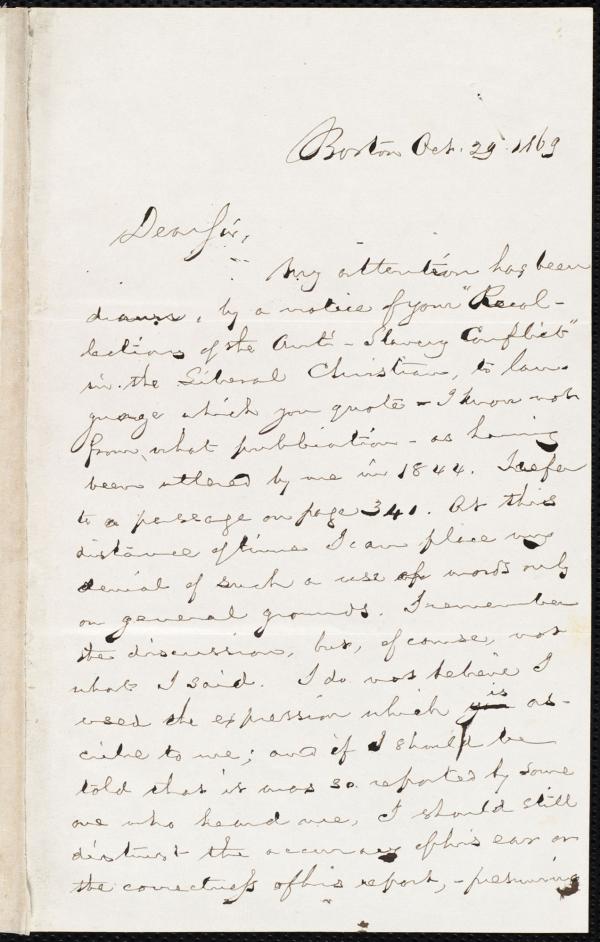 Boston Oct. 29. 1869
Dear Sir,
My attention has been
drawn, by a notice of your "Recol-
lections of the Anti-Slavery Conflict"
in the Liberal Christian, to lan-
guage which you quote - I know not
from what publication - as having
been uttered by me in 1844. I refer
to a passage on page 341. At this
distance of time I can place my
denial of such a use of words only
on general grounds. I remember
the discussion, but, of course, not
what I said. I do not believe I
used the expression which is as-
cribe to me; and if I should be
told that it was so reported by some
one who heard me, I should still
distrust the accuracy of his ear or
the correctness of his report, - presuming